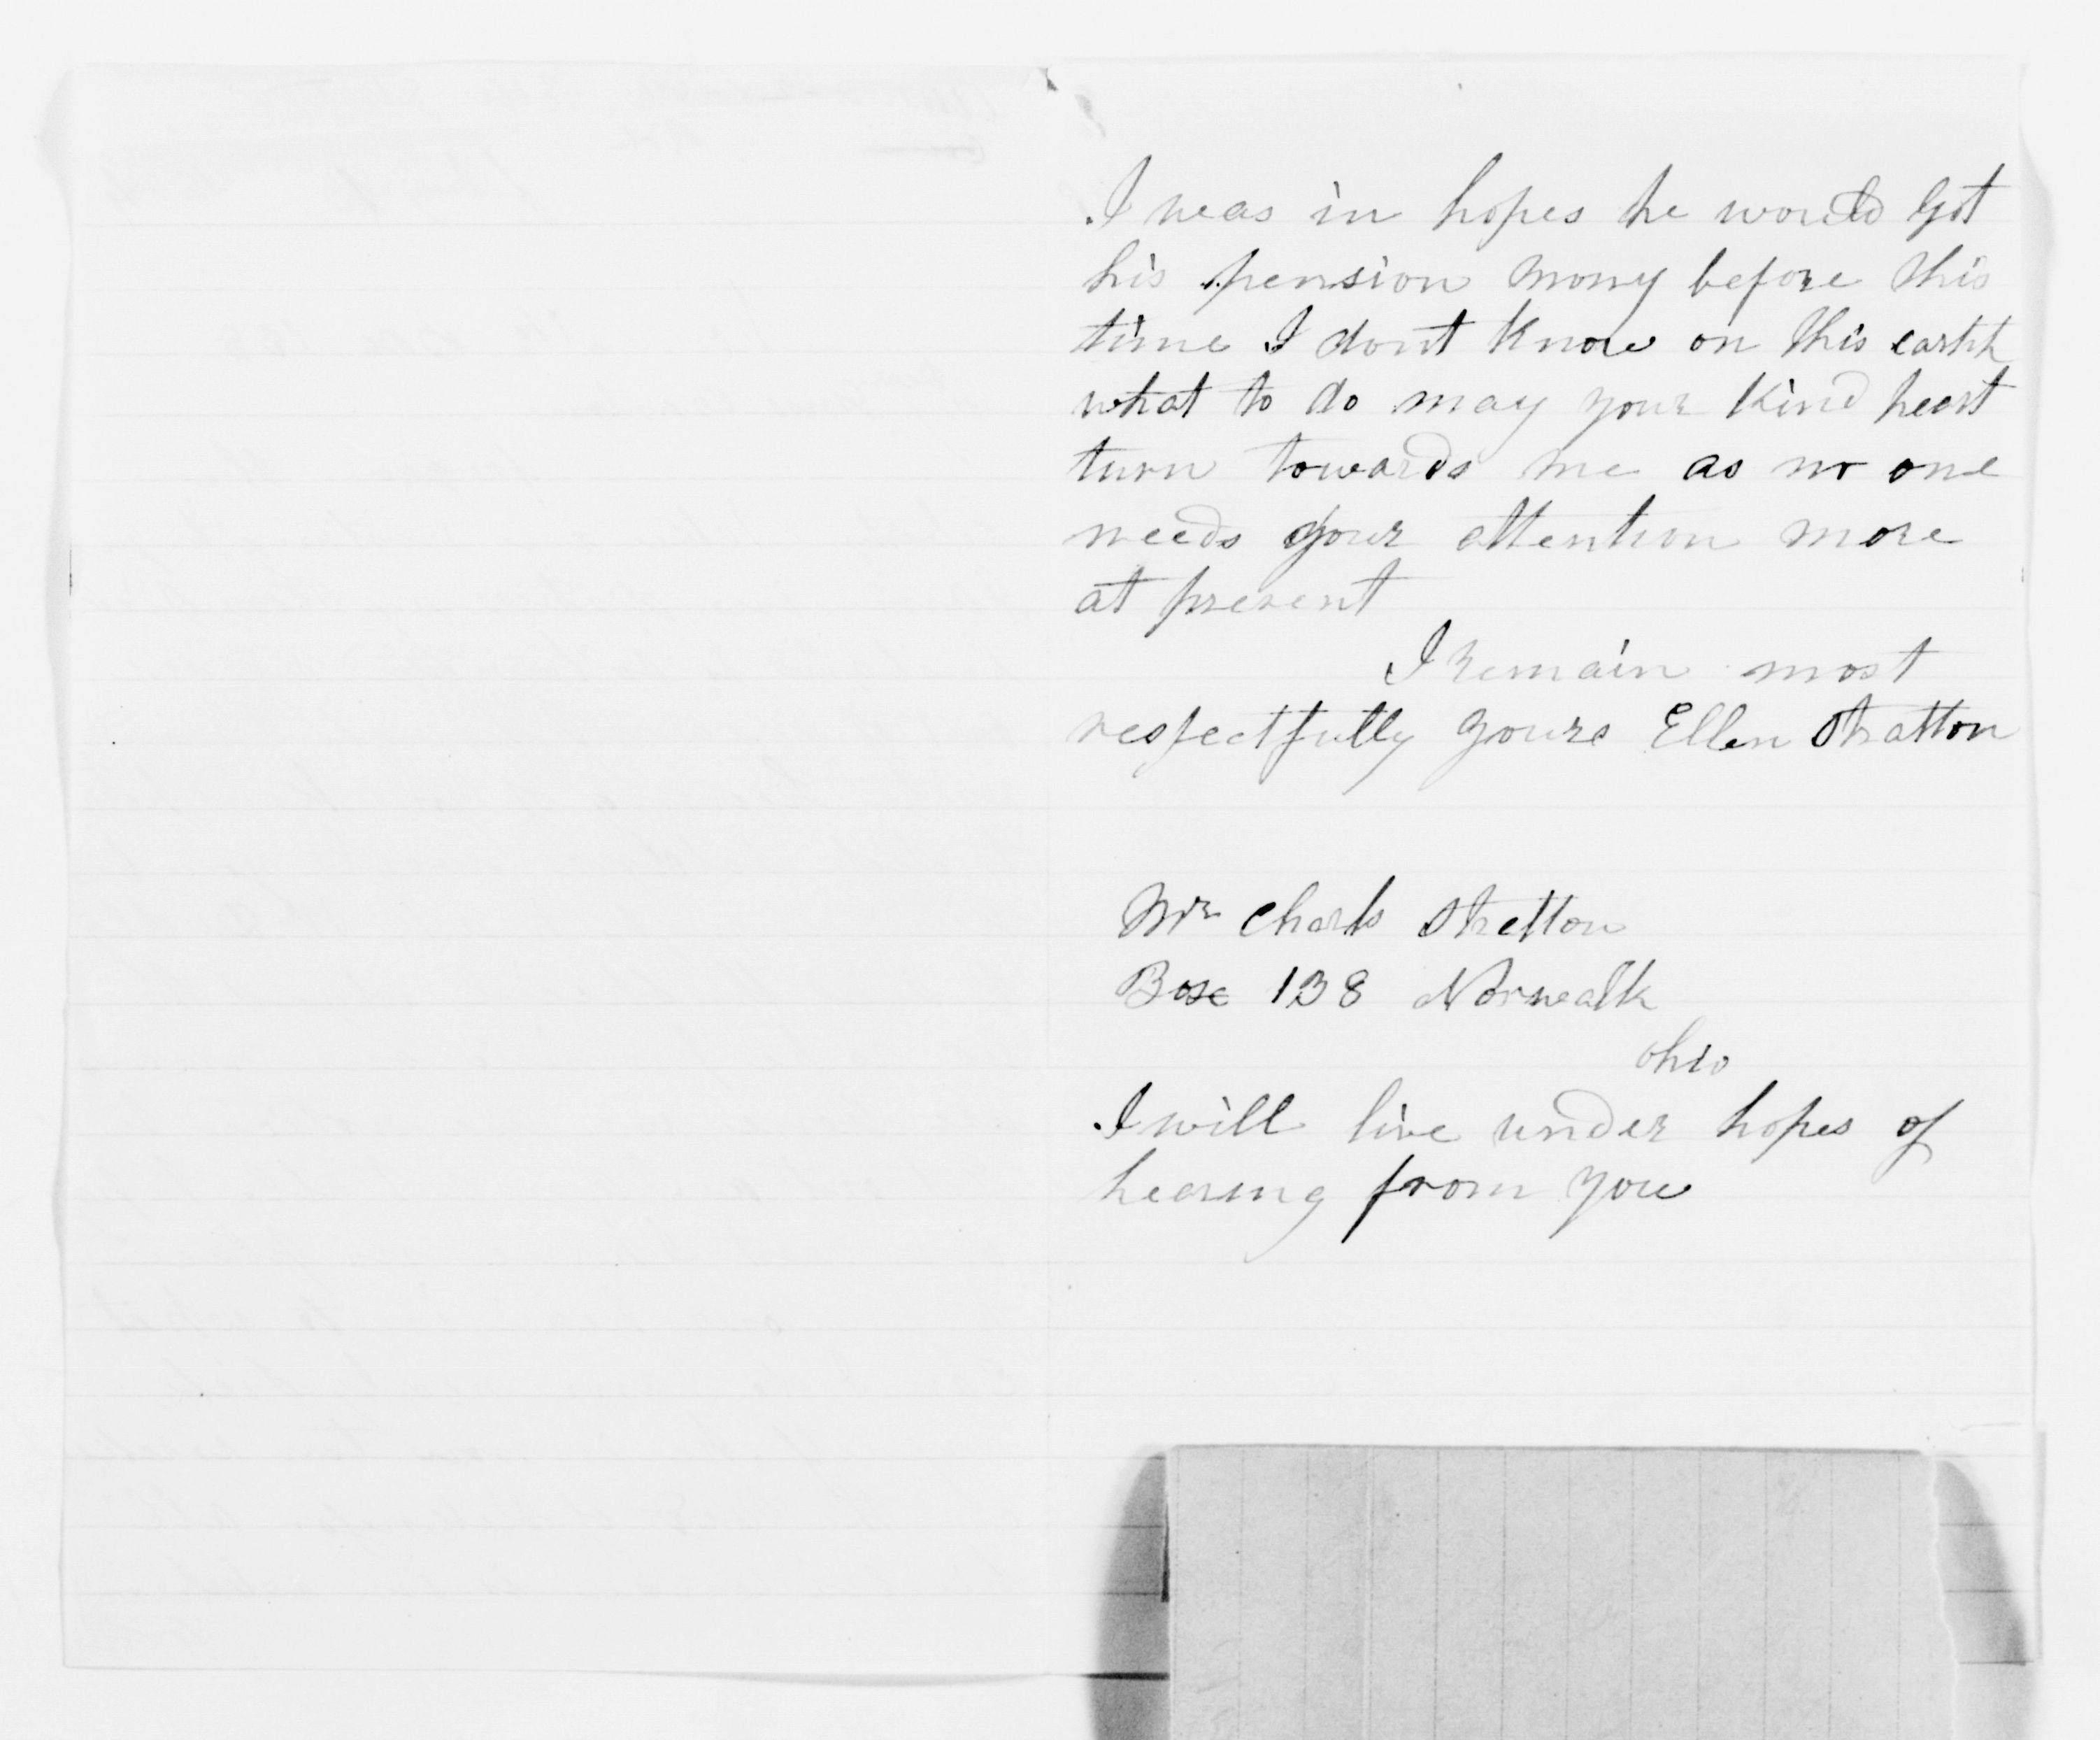 I was in hopes he would got
his pension mony before this
time I dont know on this earth
what to do may your kind heart
turn towards me as no one
needs your attention more
at present
I remain most
respectfully yours Ellen Stratton
Mr Charls Stratton
Box 138 Norwalk
Ohio
I will live under hopes of
hearing from you